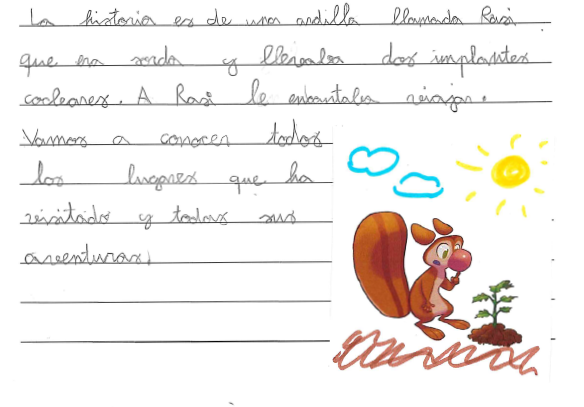 La historia es de una ardilla llamada Rasi
que era sorda y llevaba dos implantes
cocleares. A Rasi le encantaba viajar.
Vamos a conocer todos
los lugares que ha
visitado y todas sus
aventuras.